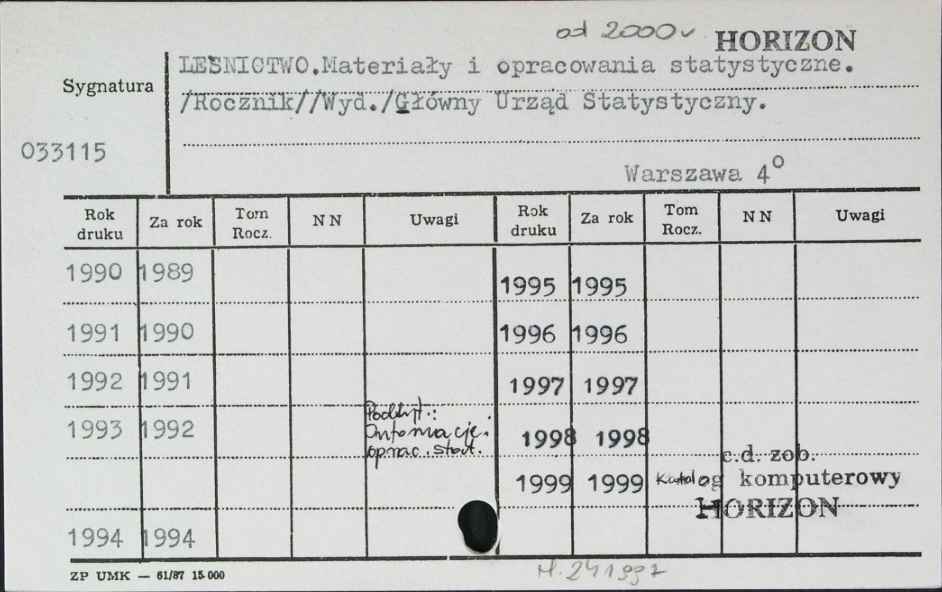 od 2000 HORIZON
LEŚNICTWO.Materiały i opracowania statystyczne.
Sygnatura
/Rocznik//Wyd./Główny Urząd Statystyczny.
033115
Warszawa 4°
Rok druku Za rok Tom Rocz. NN Uwagi Rok druku Za rok Tom Rocz. NN Uwagi
1990 1989 1995 1995
1991 1990 1996 1996
1992 1991 1997 1997
1993 1992 Podtyt.: Informacje. oprac. stat. 1998 1998
c.d. zob.
1999 1999 Katalog komputerowy
HORIZON
1994 1994
ZP UMK — 61/87 15 000